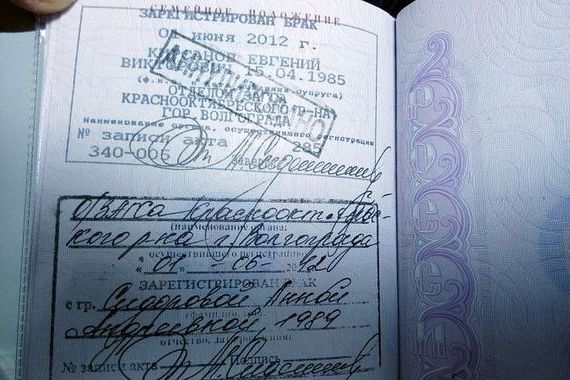 СЕМЕЙНОЕ ПОЛОЖЕНИЕ
ЗАРЕГИСТРИРОВАН БРАК
июня 2012 г.
ЕВГЕНИЙ
15.04.1985
ОТДЕЛ
КРАСНООКТЯБРЬСКОГО Р-НА
ГОР. ВОЛГОГРАДА
наименование органа, осуществившего регистрацию
№ записи акта 285
340-006
ОЗАГСа Краснокт.
кого р-на г. Волгограда
(наименование органа,
осуществившего регистрацию)
"01" 06
ЗАРЕГИСТРИРОВАН БРАК
с гр. Сидоровой Анной
Андреевной, 1989
отчество, дата рождения)
№ записи акта Подпись